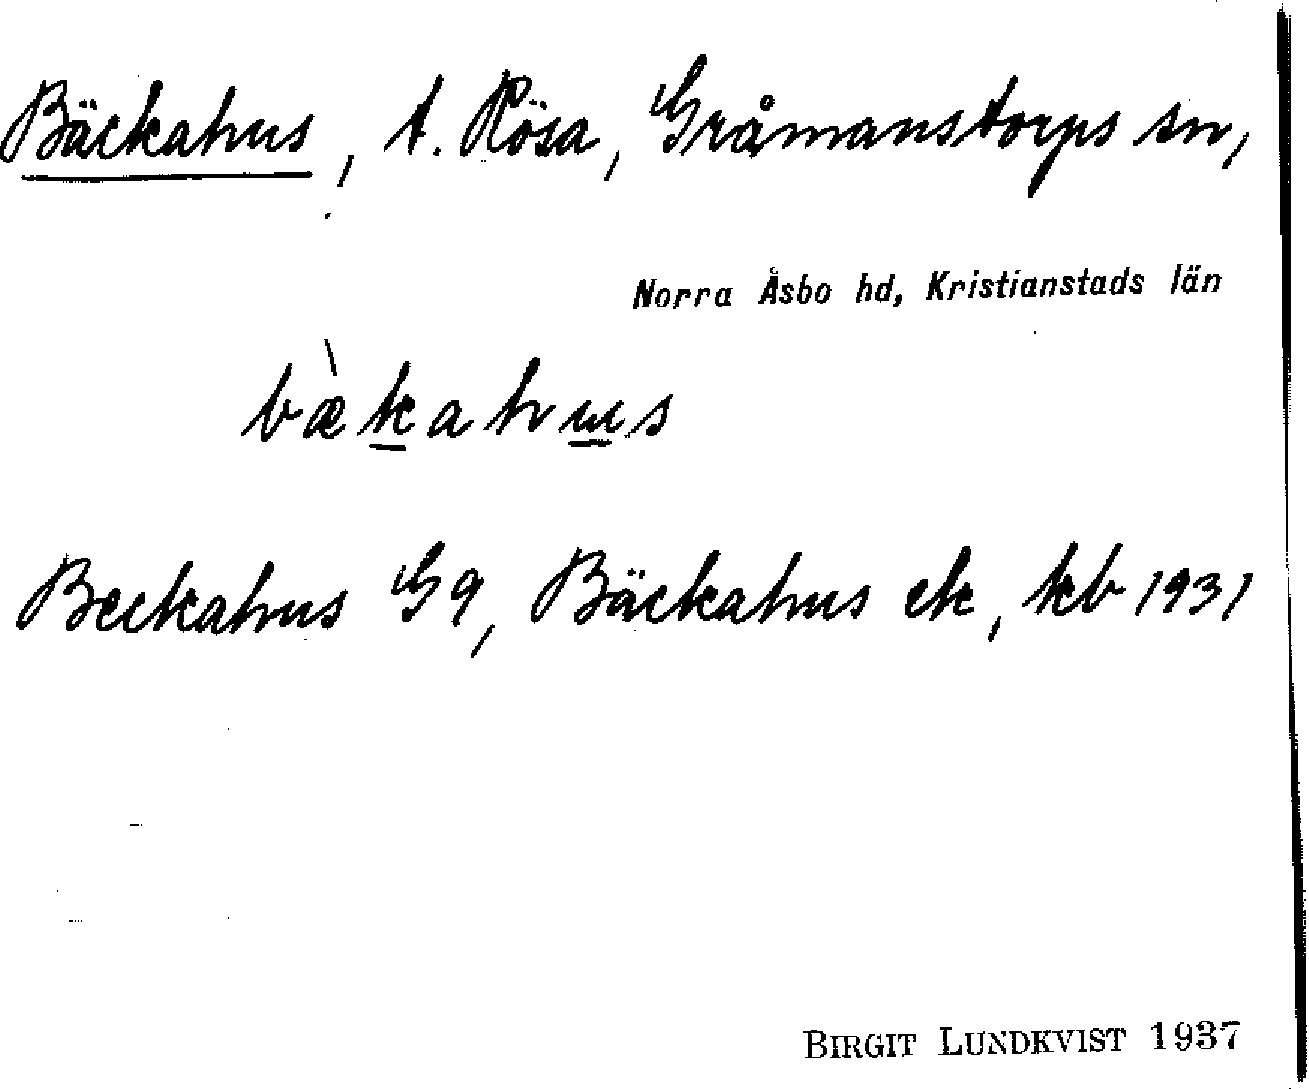 Bäckahus, t. Rösa, Gråmanstorps sn,
Norra Åsbo hd, Kristianstads län
bæ̀kahɯs
Beckahus G9, Bäckahus ek, kb 1931
BIRGIT LUNDKVIST 1937